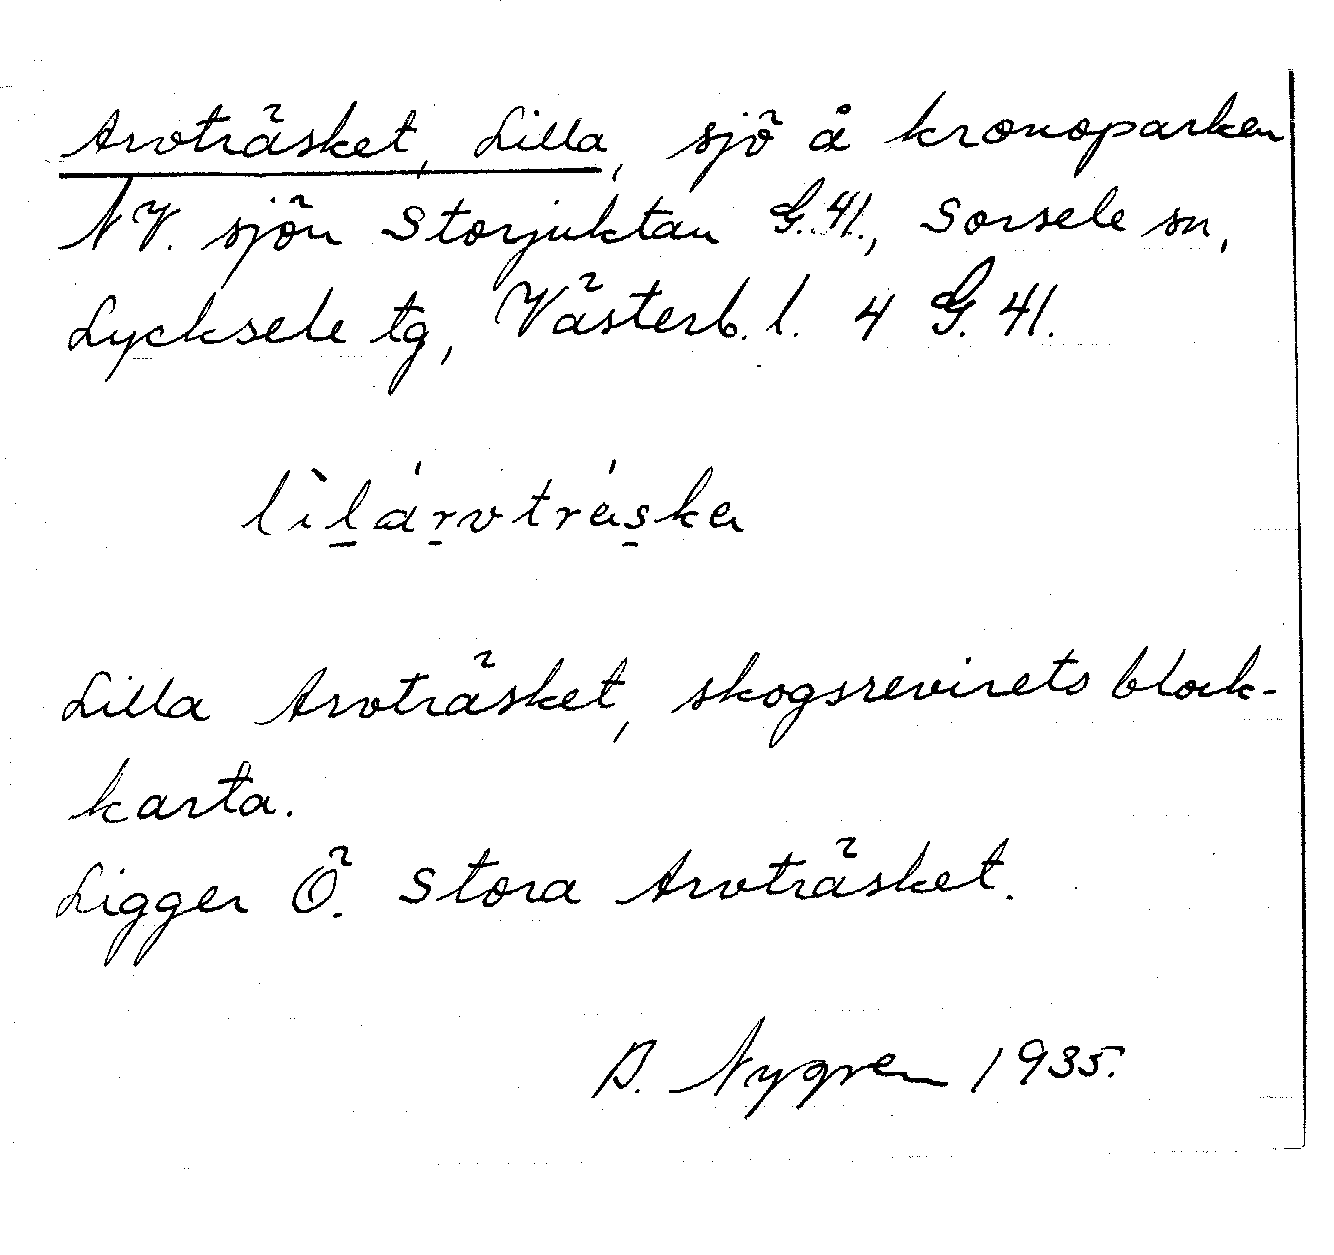 Arvträsket, Lilla, sjö å kronoparken
NV. sjön Storjuktan G.41., Sorsele sn,
Lycksele tg, Västerb. l. 4 G. 41.
lìlárvtráska
Lilla Arvträsket, skogsrevirets block-
karta.
Ligger Ö. Stora Arvträsket.
B. Nygren 1935.